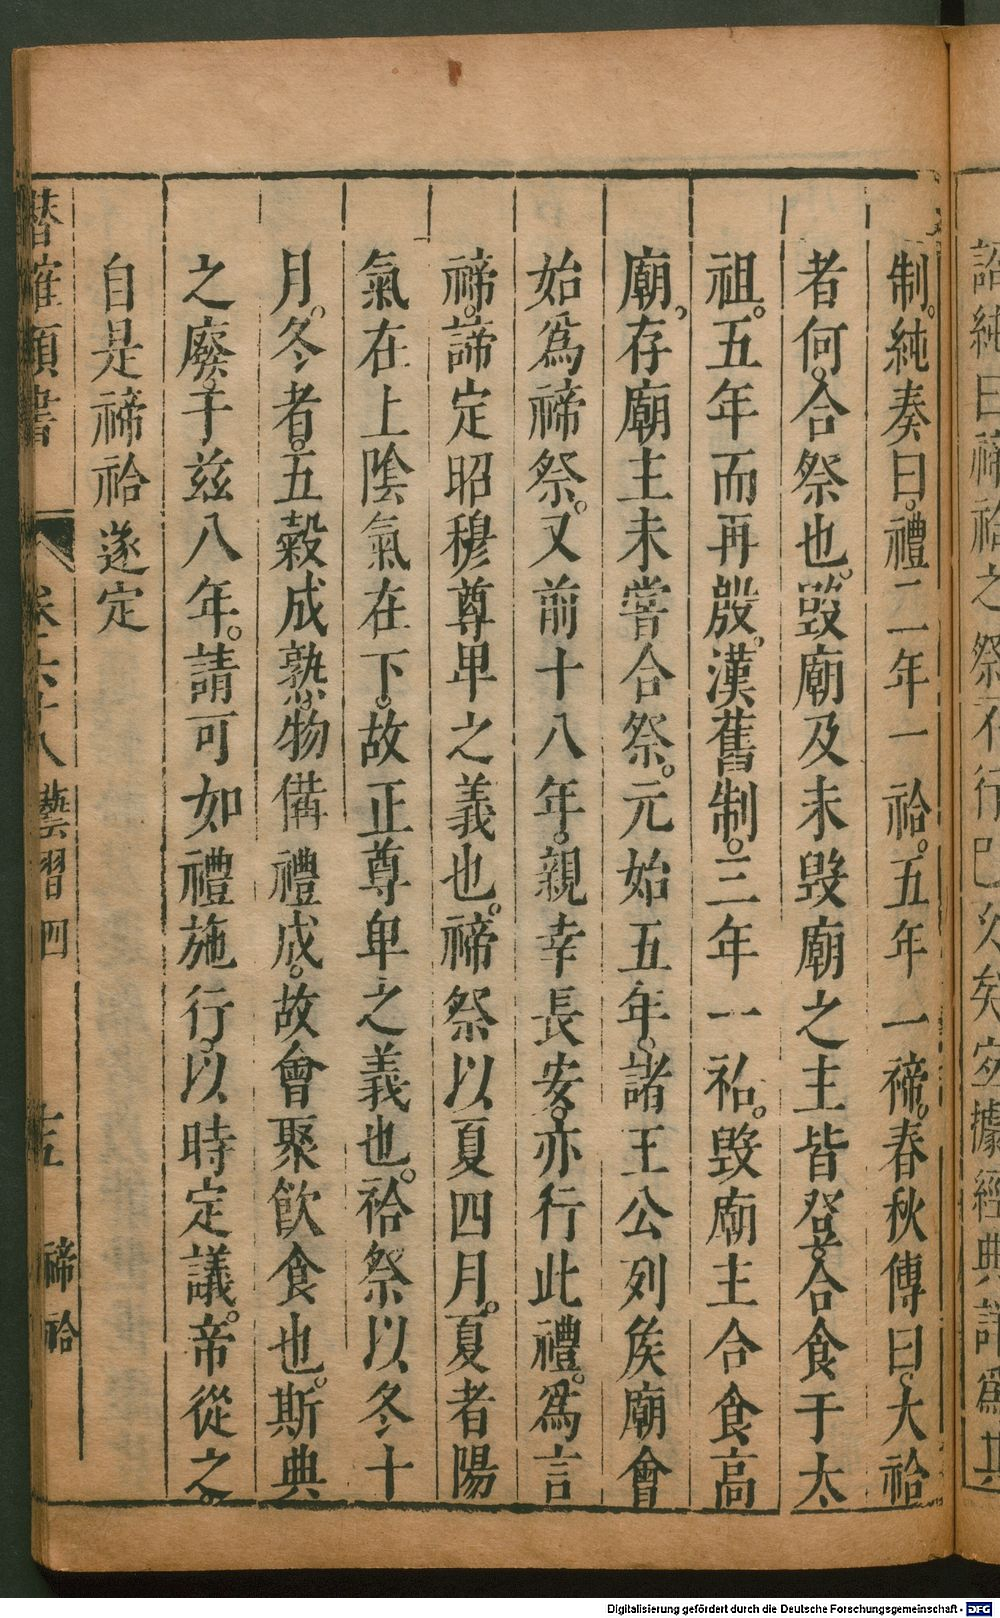 詔純曰禘祫之祭不行已久矣宜據經典詳爲其
制。純奏曰。禮二一年一祫。五年一禘。春秋傳曰。大祫
者何。合祭也。毀廟及未毀廟之主皆登。合食于太
祖。五年而再殷。漢舊制。三年一祫。毀廟主合食高
廟。存廟主未嘗合祭。元始五年。諸王公列侯廟會
始爲禘祭。又前十八年。親幸長安。亦行此禮。爲言
禘。諦定昭穆尊卑之義也。禘祭以夏四月。夏者陽
氣在上陰氣在下。故正尊卑之義也。祫祭以冬十
月。冬者。五穀成熟。物備禮成。故會聚飲食也。斯典
之廢。于兹八年。請可如禮施行。以時定議。帝從之。
自是禘祫遂定
潛確類書 卷六十八 藝習四 十五 禘祫
Digitalisierung gefördert durch die Deutsche Forschungsgemeinschaft - DFG